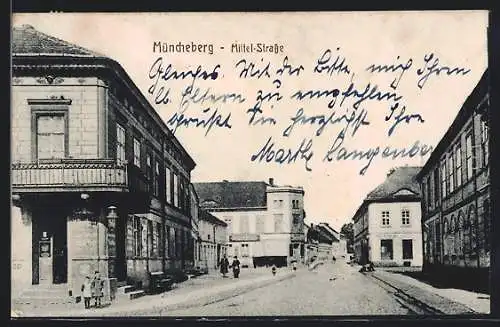 Müncheberg - Mittel-Straße
Gleiches - Mit der Bitte, mich Ihren
lb. Eltern zu empfehlen
grüßt Sie herzlichst Ihre
Martha Langenberg